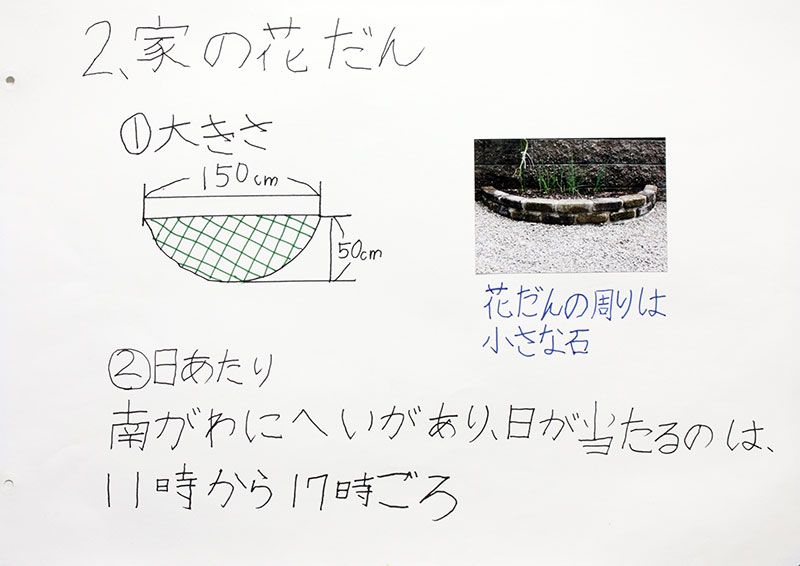 2、家の花だん
①大きさ
150cm
50cm
花だんの周りは
小さな石
②日あたり
南がわにへいがあり、日が当たるのは、
11時から17時ごろ